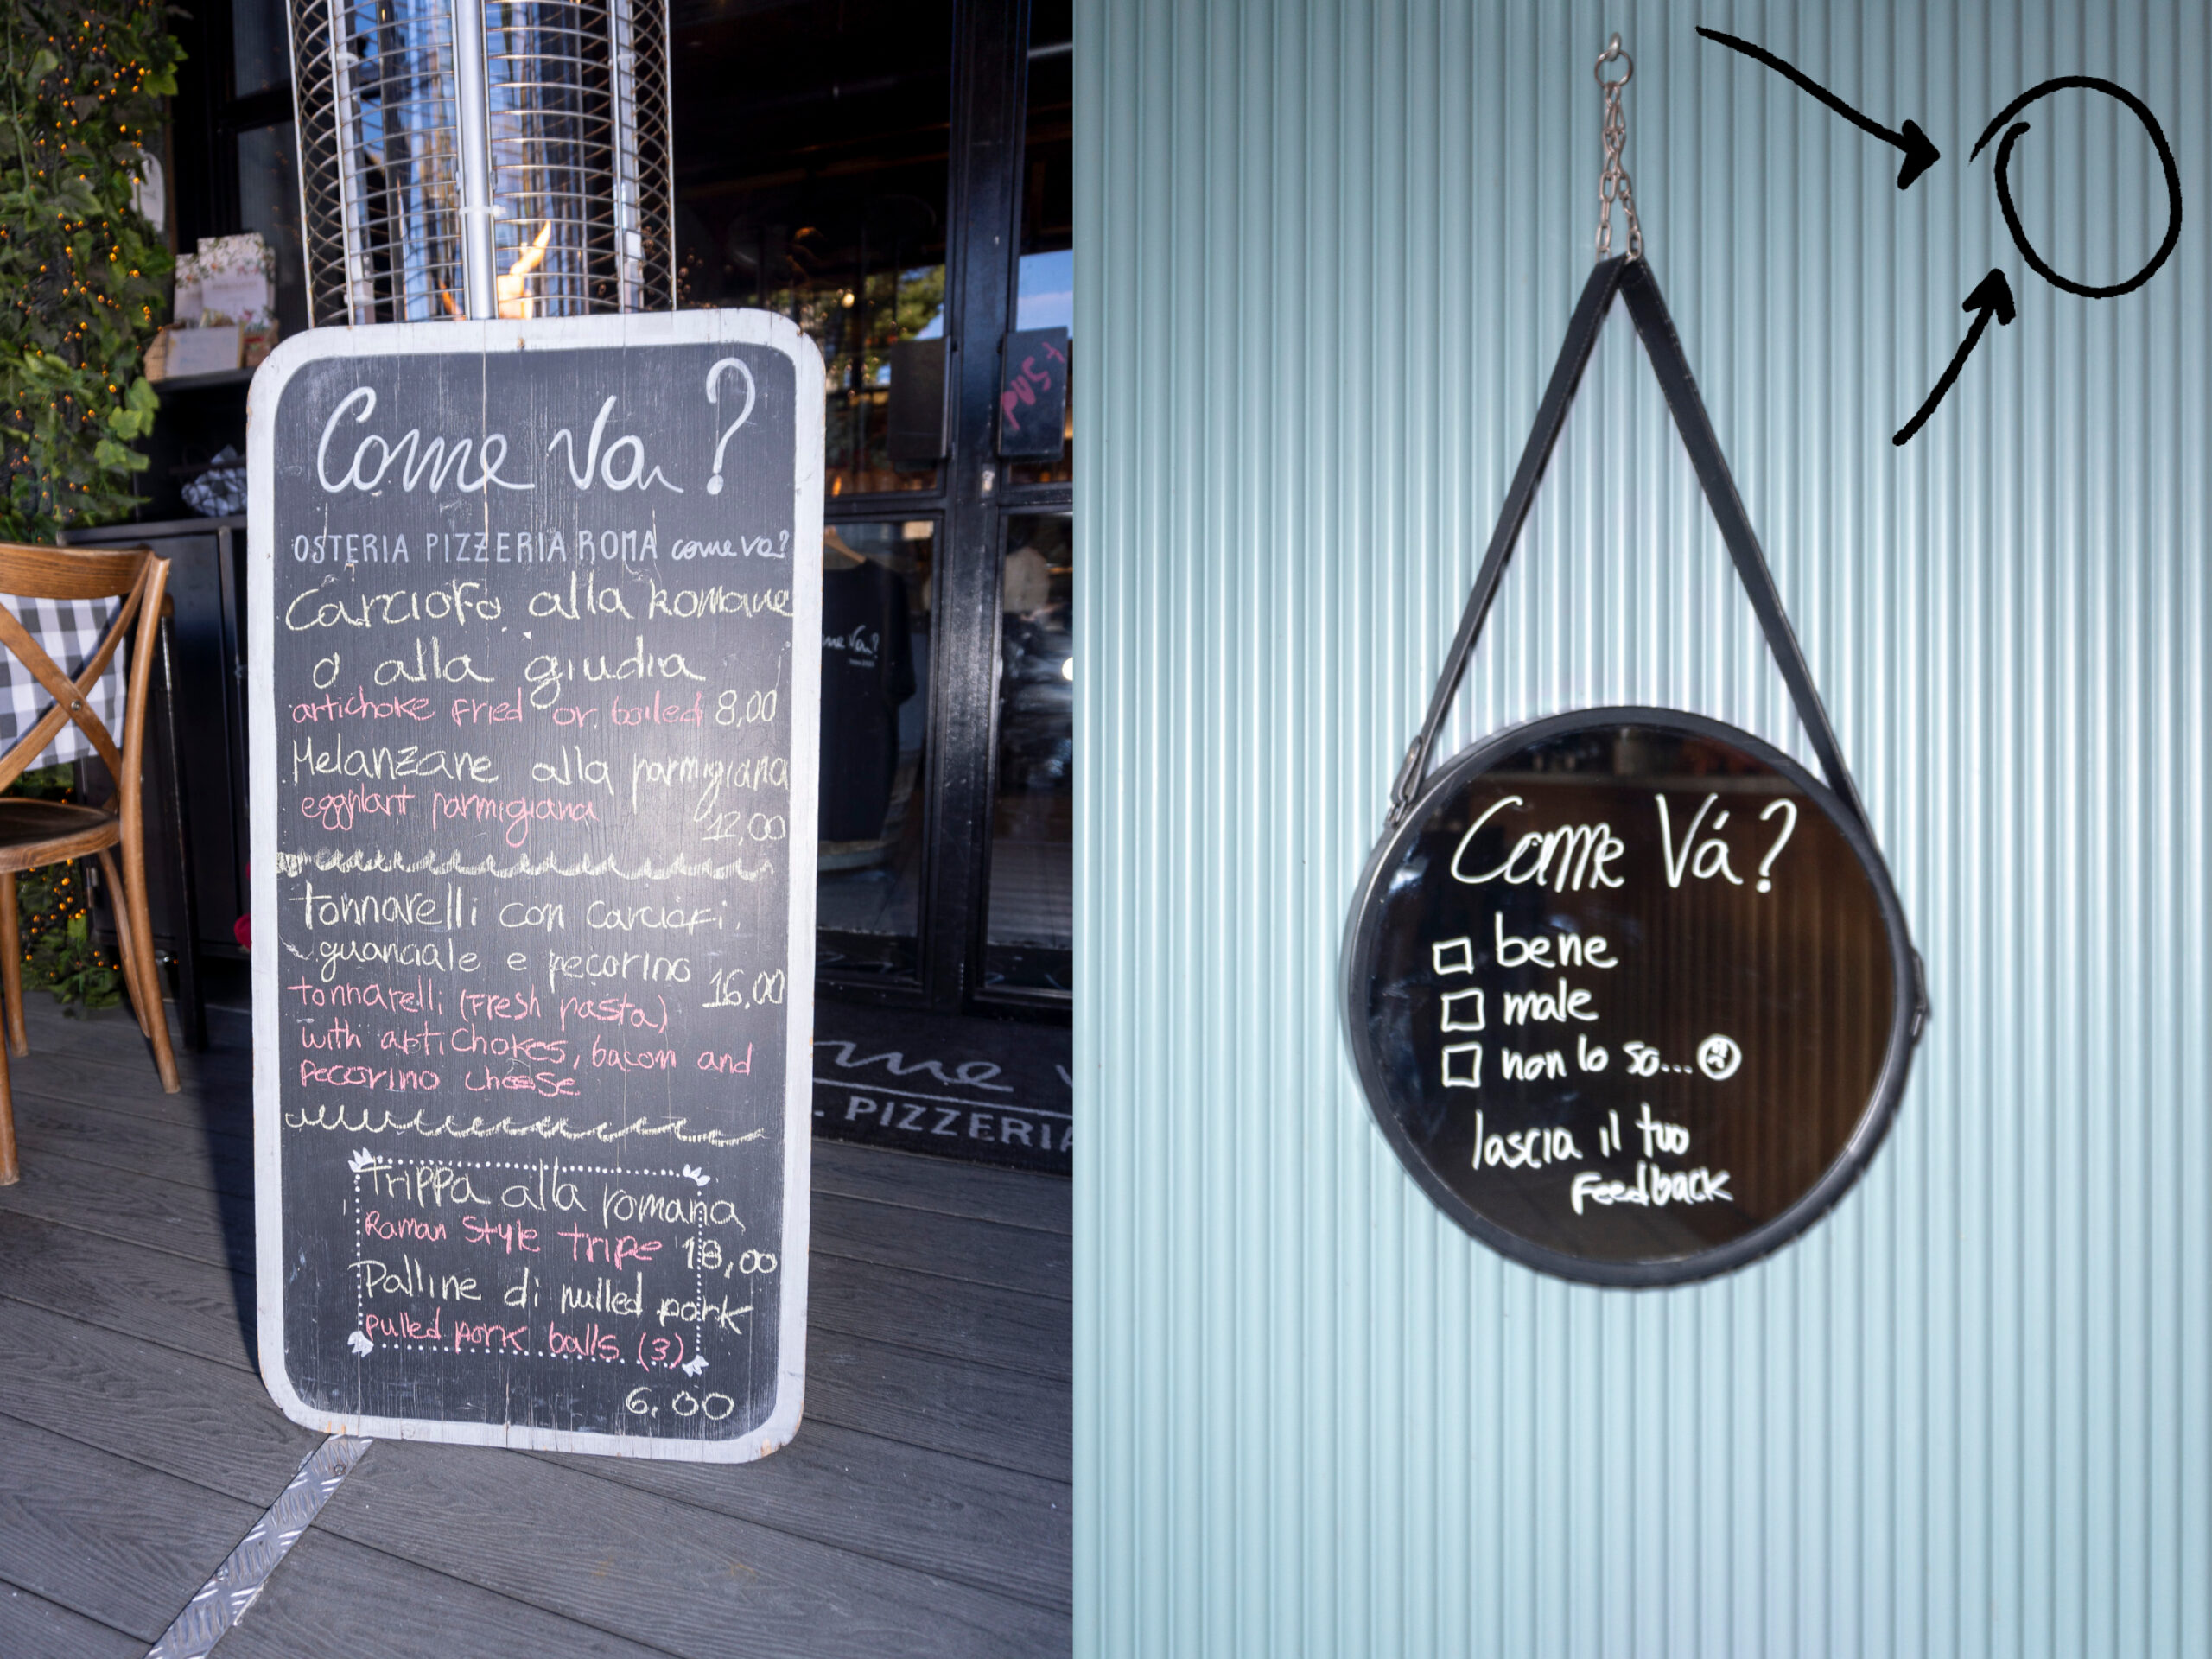 Come Va?
OSTERIA PIZZERIA ROMA come va?
Carciofo alla Romana
o alla giudia
artichoke fried or boiled 8,00
Melanzane alla parmigiana
eggplant parmigiana
12,00
tonnarelli con carciofi,
guanciale e pecorino
16,00
tonnarelli (Fresh pasta)
with artichokes, bacon and
pecorino cheese
Trippa alla romana
Roman Style tripe 18,00
Palline di pulled pork
pulled pork balls (3)
6,00
PUSH
me Va?
me V
PIZZERIA
Come Vá?
bene
male
non lo so...
lascia il tuo
Feedback